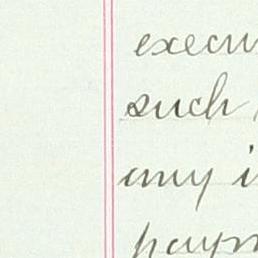 execu
such
any i
paym